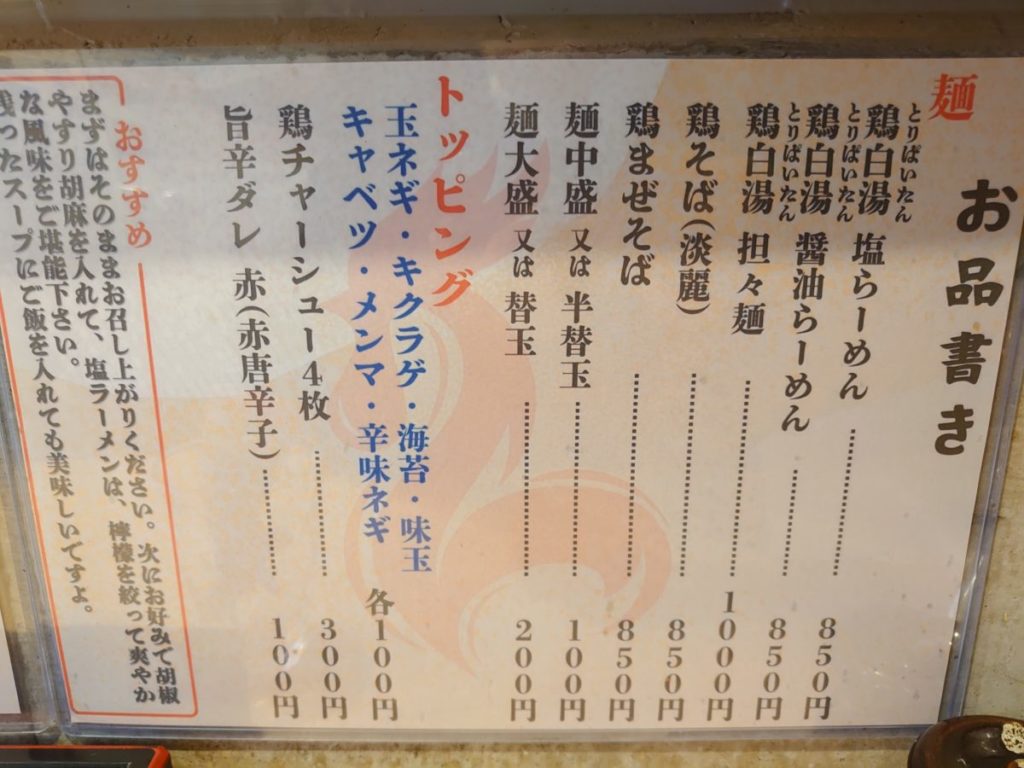 お品書き
麺
とりぱいたん
鶏白湯 塩らーめん 850円
とりぱいたん
鶏白湯 醤油らーめん 850円
とりぱいたん
鶏白湯 担々麺 1000円
鶏そば(淡麗) 850円
鶏まぜそば 850円
麺中盛 又は 半替玉 100円
麺大盛 又は 替玉 200円
トッピング
玉ネギ・キクラゲ・海苔・味玉
キャベツ・メンマ・辛味ネギ 各100円
鶏チャーシュー4枚 300円
旨辛ダレ 赤(赤唐辛子) 100円
おすすめ
まずはそのままお召し上がりください。次にお好みで胡椒
やすり胡麻を入れて、塩ラーメンは、檸檬を絞って爽やか
な風味をご堪能下さい。
残ったスープにご飯を入れても美味しいですよ。